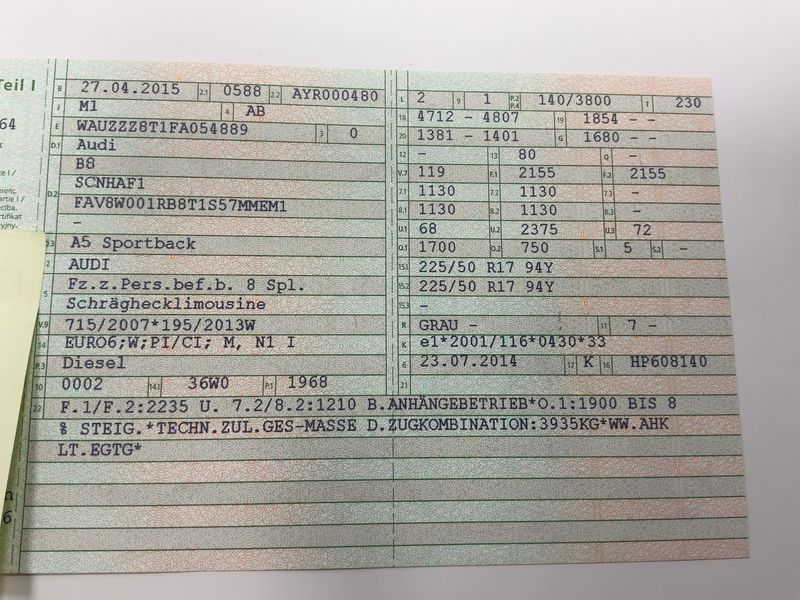 Teil I
B 27.04.2015 2.1 0588 2.2 AYR000480
J M1 4 AB
E WAUZZZ8T1FA054889 3 0
D.1 Audi
B8
SCNHAF1
D.2 FAV8W001RB8T1S57MMEM1
-
D.3 A5 Sportback
2 AUDI
5 Fz.z.Pers.bef.b. 8 Spl.
Schräghecklimousine
V.9 715/2007*195/2013W
14 EURO6;W;PI/CI; M, N1 I
P.3 Diesel
10 0002 14.1 36W0 P.1 1968
L 2 9 1 P.2 P.4 140/3800 T 230
18 4712 - 4807 19 1854 - -
20 1381 - 1401 G 1680 - -
12 - 13 80 Q -
V.7 119 F.1 2155 F.2 2155
7.1 1130 7.2 1130 7.3 -
8.1 1130 8.2 1130 8.3 -
U.1 68 U.2 2375 U.3 72
O.1 1700 O.2 750 S.1 5 S.2 -
15.1 225/50 R17 94Y
15.2 225/50 R17 94Y
15.3 -
R GRAU - 11 7 -
K e1*2001/116*0430*33
6 23.07.2014 17 K 16 HP608140
21
22 F.1/F.2:2235 U. 7.2/8.2:1210 B.ANHÄNGEBETRIEB*O.1:1900 BIS 8
% STEIG.*TECHN.ZUL.GES-MASSE D.ZUGKOMBINATION:3935KG*WW.AHK
LT.EGTG*
64